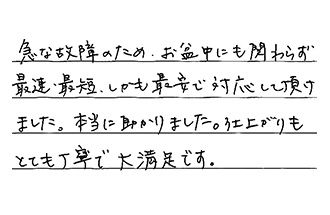 急な故障のため、お盆中にも関わらず
最速・最短、しかも最安で対応して頂け
ました。本当に助かりました。仕上がりも
とても丁寧で大満足です。